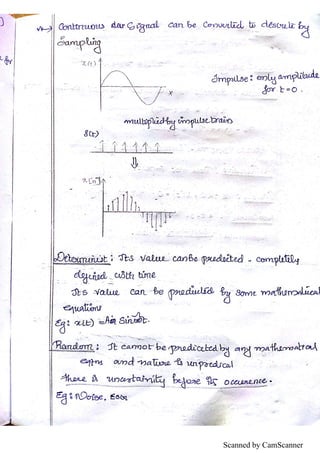 → Continuous dar Signal can be Converted to descrete by
Sampling
x(t)
x
Impulse: only amplitude
for t=0.
multiplied by impulse train
δ(t)
x[n]
Determinist: Its value can be predicted - completly
defined with time
Its value can be predicted by some mathematical
equations
Eg: x(t) = Am Sinωt.
Random: It cannot be predicated by any mathematical
eqtns and nature is unpredical
there is uncertainity before its occurence.
Eg: Noise,
Scanned by CamScanner